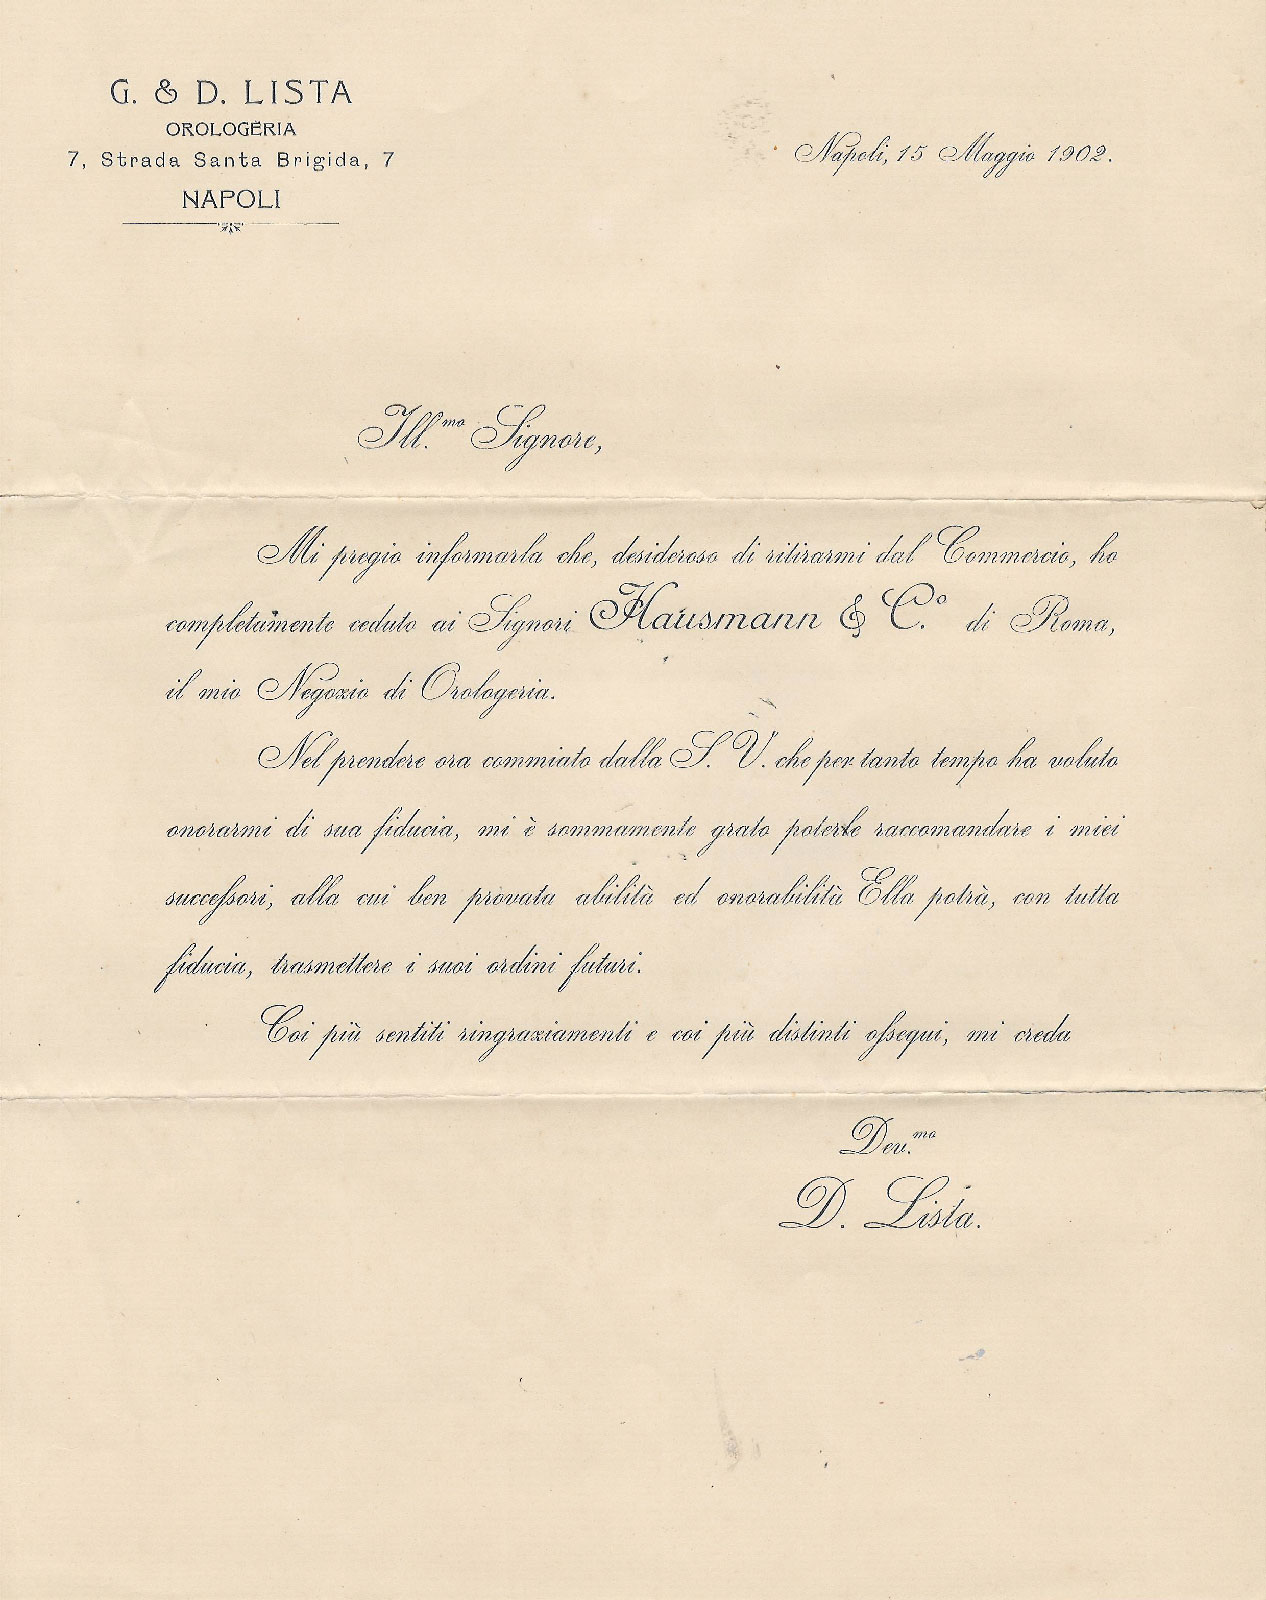 G. & D. LISTA
OROLOGERIA
7, Strada Santa Brigida, 7
NAPOLI
Napoli, 15 Maggio 1902.
Ill.mo Signore,
Mi pregio informarla che, desideroso di ritirarmi dal Commercio, ho
completamente ceduto ai Signori Hausmann & C.o di Roma,
il mio Negozio di Orologeria.
Nel prendere ora commiato dalla S. V. che per tanto tempo ha voluto
onorarmi di sua fiducia, mi è sommamente grato poterle raccomandare i miei
successori, alla cui ben provata abilità ed onorabilità Ella potrà, con tutta
fiducia, trasmettere i suoi ordini futuri.
Coi più sentiti ringraziamenti e coi più distinti ossequi, mi creda
Dev.mo
D. Lista.